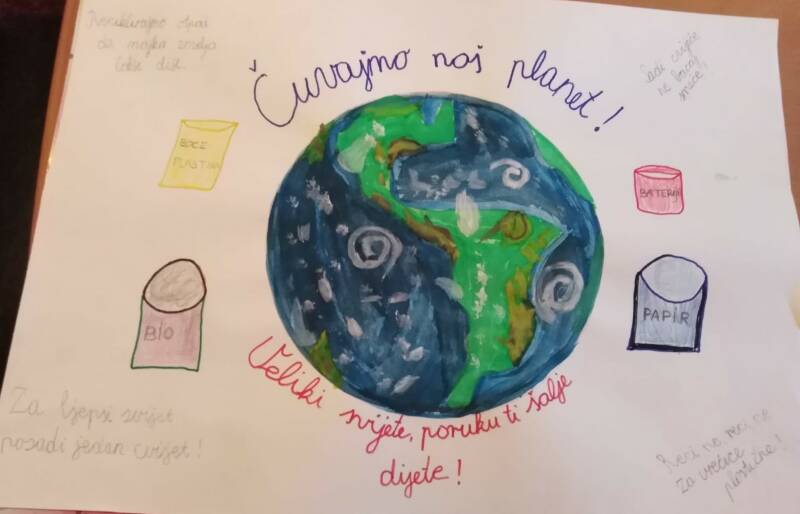 Reciklirajmo otpad
da majka zemlja
lakše diše.
Čuvajmo naš planet!
Sadi cvijeće
ne bacaj
smeće!
BOCE
PLASTIKA
BATERIJE
BIO
PAPIR
Veliki svijete, poruku ti šalje
dijete!
Za ljepši svijet
posadi jedan cvijet!
Reci ne, reci ne
za vrećice
plastične!